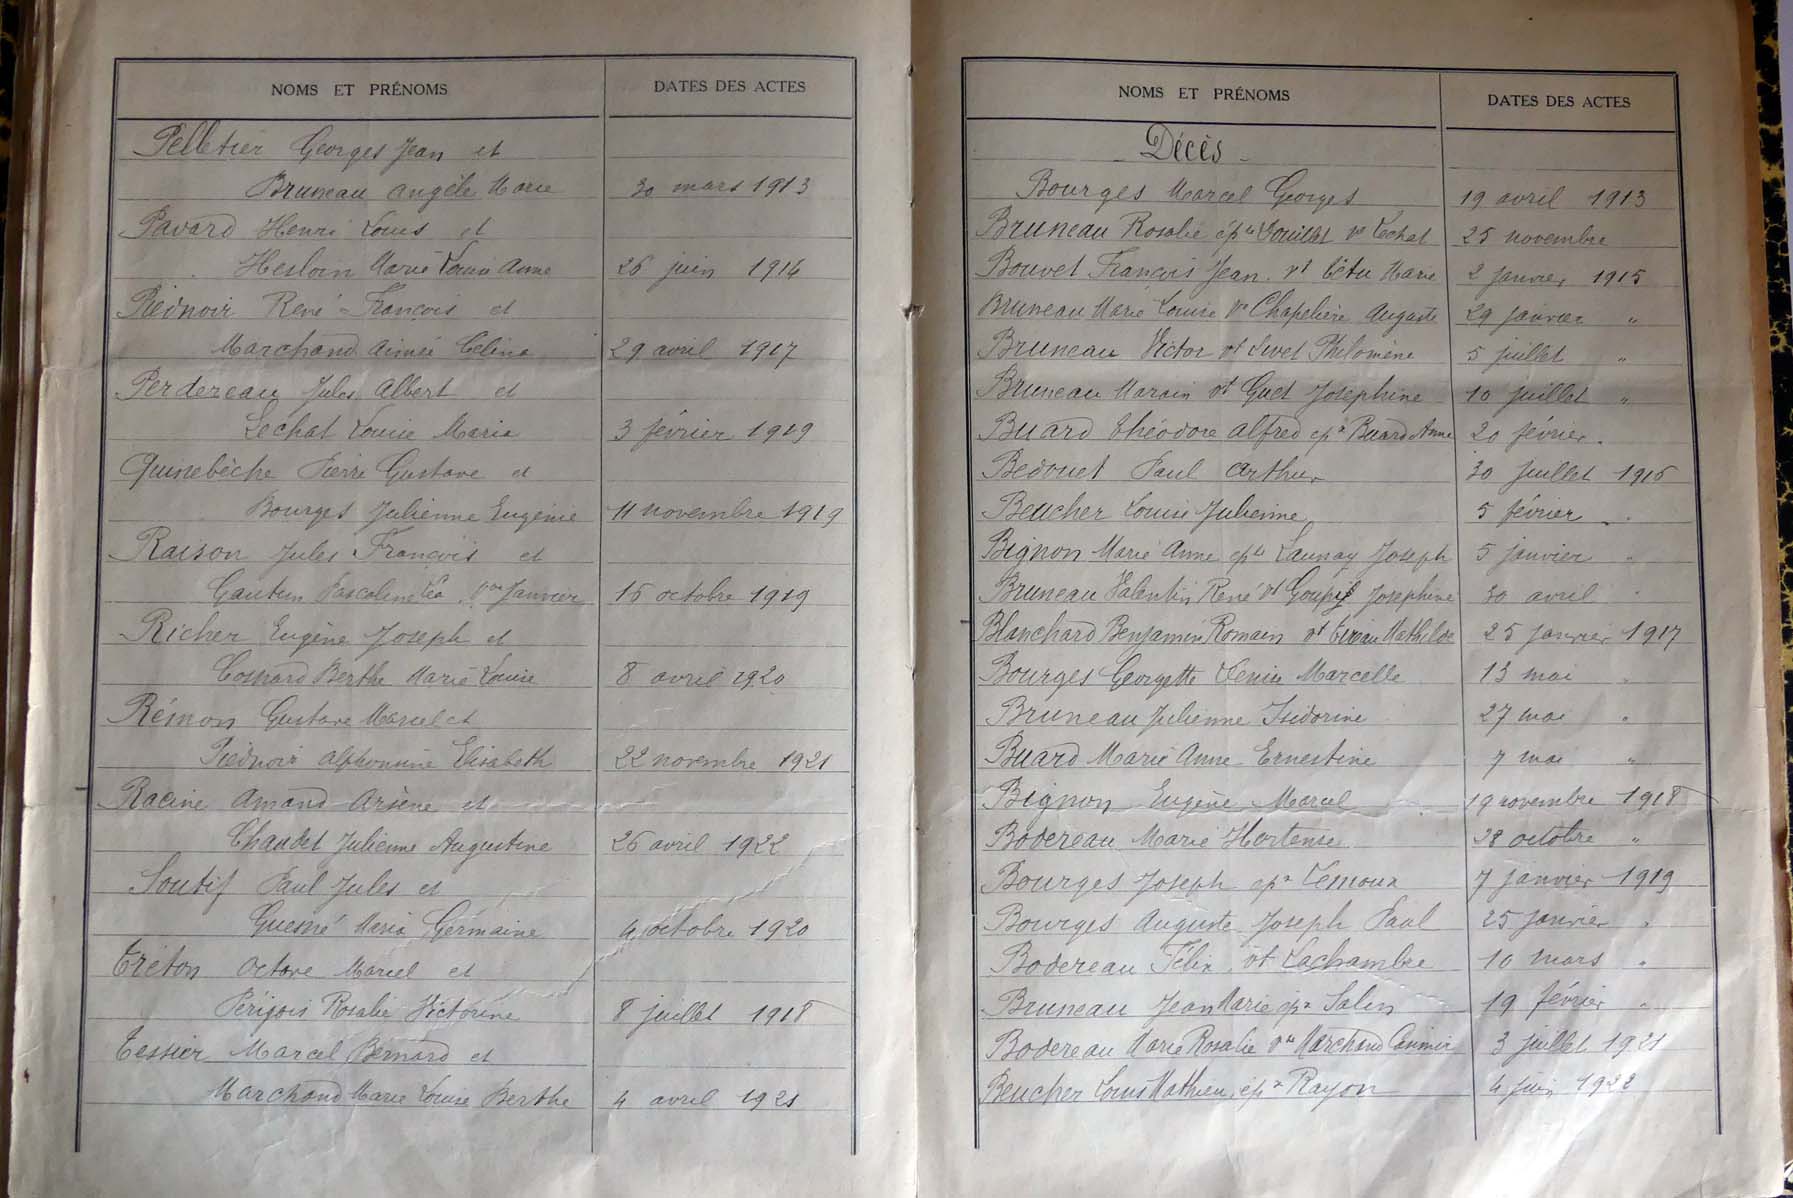 NOMS ET PRÉNOMS DATES DES ACTES
Pelletier Georges Jean et
Bruneau Angèle Marie 30 mars 1913
Pavard Henri Louis et
Hesloin Marie Louise Anne 26 juin 1914
Piednoir René François et
Marchand Aimée Celina 29 avril 1917
Perdereau Jules Albert et
Lechat Louise Maria 3 février 1919
Quinebèche Pierre Gustave et
Bourges Julienne Eugénie 11 novembre 1919
Raison Jules François et
Pascaline Léa Vve Janvier 16 octobre 1919
Richer Eugène Joseph et
Berthe Marie Louise 8 avril 1920
Rémon Gustave Marcel et
Piednoir Alphonsine Elisabeth 22 novembre 1921
Racine Amand Arsène et
Chaudet Julienne Augustine 26 avril 1922
Soutif Paul Jules et
Guesné Maria Germaine 4 octobre 1920
Créton Octave Marcel et
Périgois Rosalie Victorine 8 juillet 1918
Tessier Marcel Bernard et
Marchand Marie Louise Berthe 4 avril 1921
NOMS ET PRÉNOMS DATES DES ACTES
Décès
Bourges Marcel Georges 19 avril 1913
Bruneau Rosalie épse ve Lechat 25 novembre
Bouvet François Jean vf Têtu Marie 2 janvier 1915
Bruneau Marie Louise Ve Chapelière Auguste 29 janvier "
Bruneau Victor vf Sivet Philomène 5 juillet "
Bruneau Marin vf Guet Joséphine 10 juillet "
Buard Théodore Alfred épx Buard Anne 20 février "
Bedouet Paul Arthur 30 juillet 1916
Beucher Louise Julienne 5 février "
Bignon Marie Anne épse Launay Joseph 5 janvier "
Bruneau Valentin René vf Goupil Joséphine 30 avril "
Blanchard Benjamin Romain vf Mathilde 25 janvier 1917
Bourges Georgette Denise Marcelle 13 mai "
Bruneau Julienne Isidorine 27 mai "
Buard Marie Anne Ernestine 7 mai "
Bignon Eugène Marcel 19 novembre 1918
Bodereau Marie Hortense 28 octobre "
Bourges Joseph épx Lemoux 7 janvier 1919
Bourges Auguste Joseph Paul 25 janvier "
Bodereau Félix vf Lachambre 10 mars "
Bruneau Jean Marie épx Salin 19 février "
Bodereau Marie Rosalie Vve Marchand Casimir 3 juillet 1921
Beucher Louis Mathieu épx Rayon 4 juin 1922